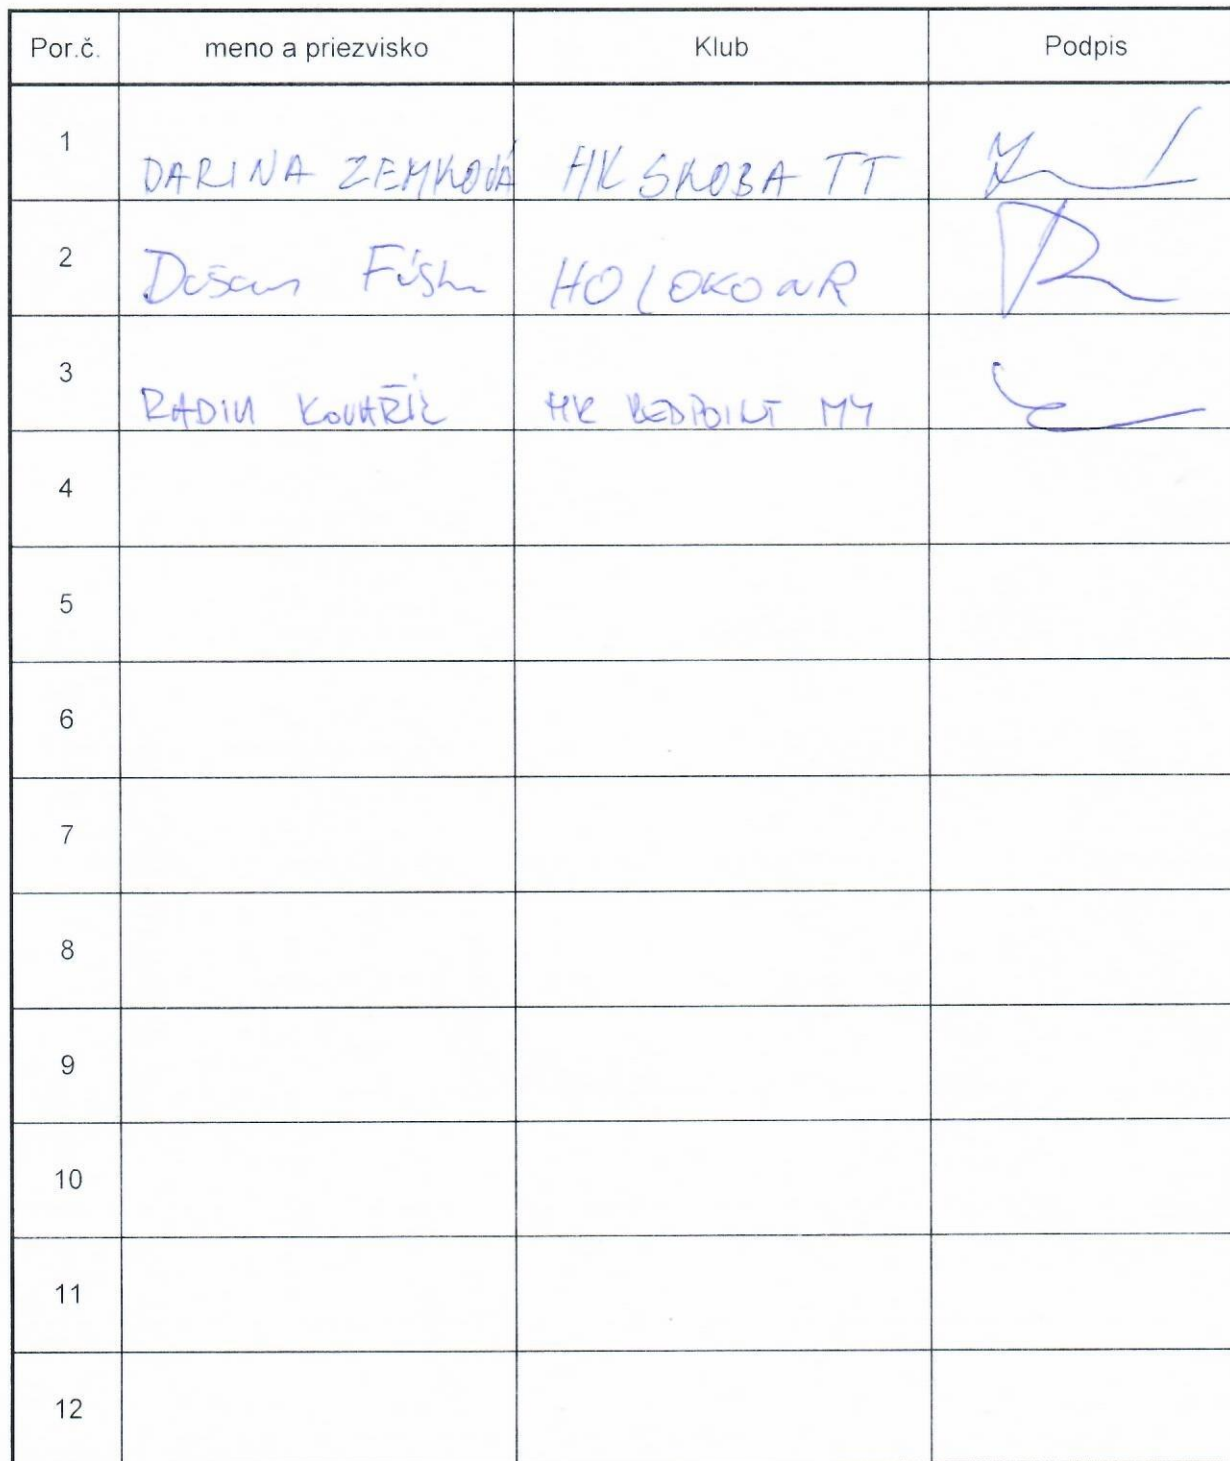 Por.č. meno a priezvisko Klub Podpis
1 DARINA ZEMKOVÁ HK SKOBA TT
2 Dušan HOLOKONR
3 RADIM KOVAŘÍK HK REDPOINT MY
4
5
6
7
8
9
10
11
12